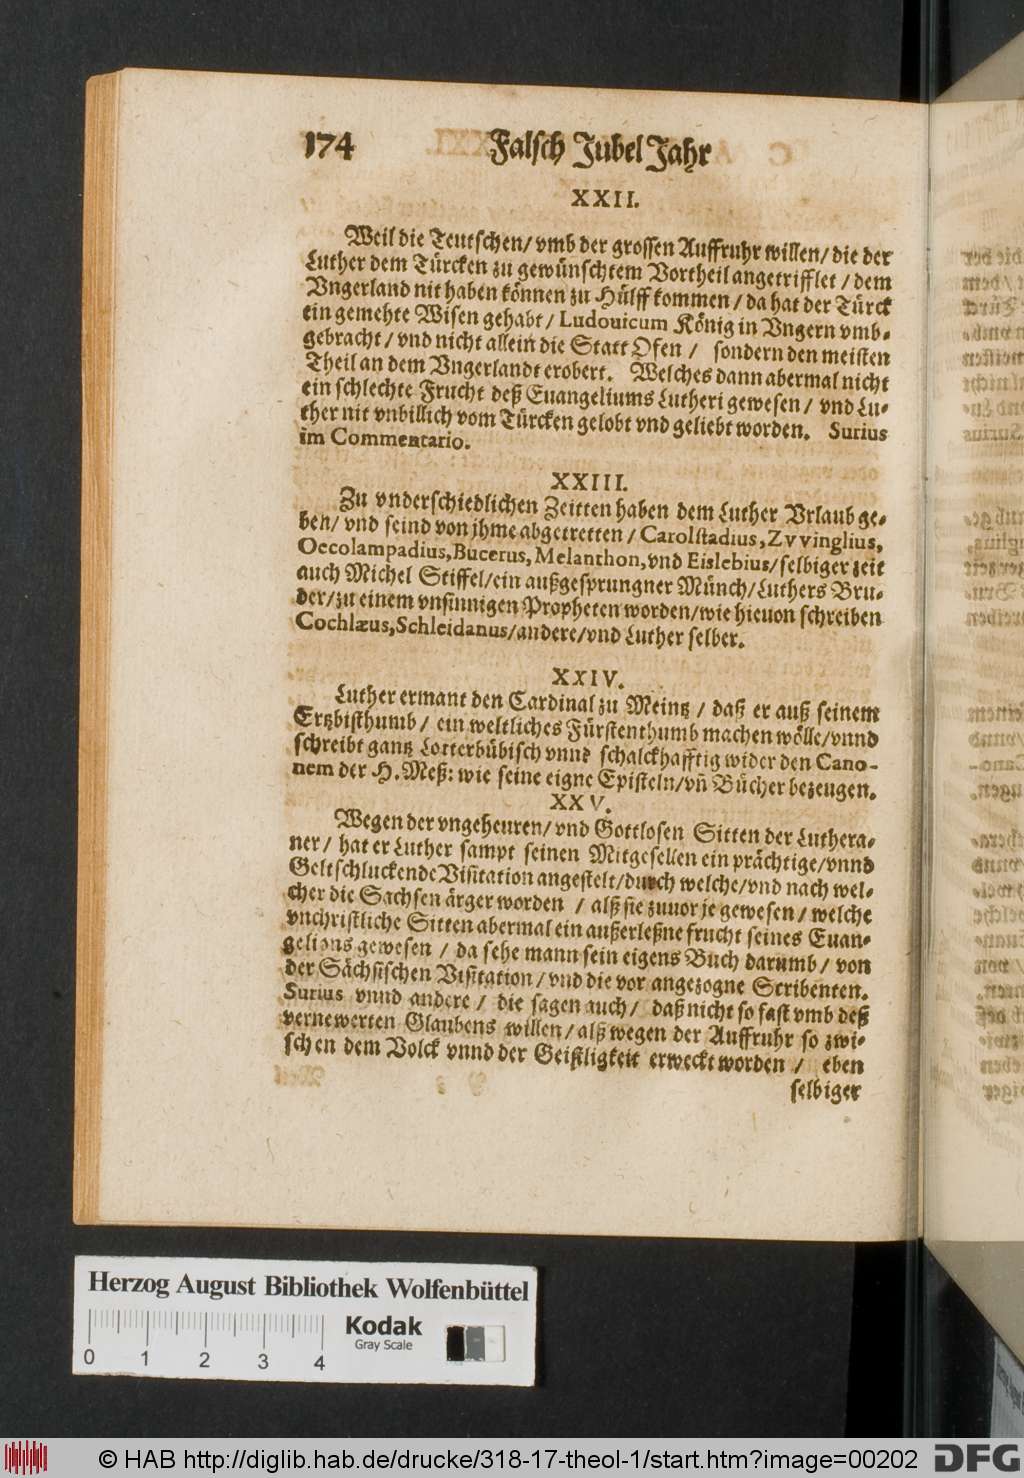 174 Falsch Jubel Jahr
XXII.
Weil die Teutschen/ vmb der grossen Auffruhr willen/ die der
Luther dem Türcken zu gewünschtem Vortheil angetrifflet / dem
Vngerland nit haben können zu Hülff kommen / da hat der Türck
ein gemehte Wisen gehabt / Ludouicum König in Vngern vmb-
gebracht / vnd nicht allein die Statt Ofen / sondern den meisten
Theil an dem Vngerlandt erobert. Welches dann abermal nicht
ein schlechte Frucht deß Euangeliums Lutheri gewesen / vnd Lu-
ther nit vnbillich vom Türcken gelobt vnd geliebt worden. Surius
im Commentario.
XXIII.
Zu vnderschiedlichen Zeitten haben dem Luther Vrlaub ge-
ben/ vnd seind von jhme abgetretten / Carolstadius, Zvvinglius,
Oecolampadius, Bucerus, Melanthon, vnd Eislebius/ selbiger zeit
auch Michel Stiffel/ ein außgesprungner Münch/ Luthers Bru-
der/ zu einem vnsinnigen Propheten worden/ wie hieuon schreiben
Cochlæus, Schleidanus/ andere/ vnd Luther selber.
XXIV.
Luther ermant den Cardinal zu Meintz / daß er auß seinem
Ertzbisthumb / ein weltliches Fürstenthumb machen wölle/ vnnd
schreibt gantz Lotterbübisch vnnd schalckhafftig wider den Cano-
nem der H. Meß: wie seine eigne Episteln/ vñ Bücher bezeugen.
XXV.
Wegen der vngeheuren/ vnd Gottlosen Sitten der Luthera-
ner / hat er Luther sampt seinen Mitgesellen ein prächtige/ vnnd
Geltschluckende Visitation angestelt/ durch welche/ vnd nach wel-
cher die Sachsen ärger worden / alß sie zuuor je gewesen / welche
vnchristliche Sitten abermal ein außerleßne frucht seines Euan-
gelions gewesen / da sehe mann sein eigens Buch darumb / von
der Sächsischen Visitation / vnd die vor angezogne Scribenten.
Surius vnnd andere / die sagen auch / daß nicht so fast vmb deß
vernewerten Glaubens willen / alß wegen der Auffruhr so zwi-
schen dem Volck vnnd der Geistligkeit erweckt worden / eben
selbiger
Herzog August Bibliothek Wolfenbüttel
0 1 2 3 4
Kodak
Gray Scale
© HAB http://diglib.hab.de/drucke/318-17-theol-1/start.htm?image=00202
DFG